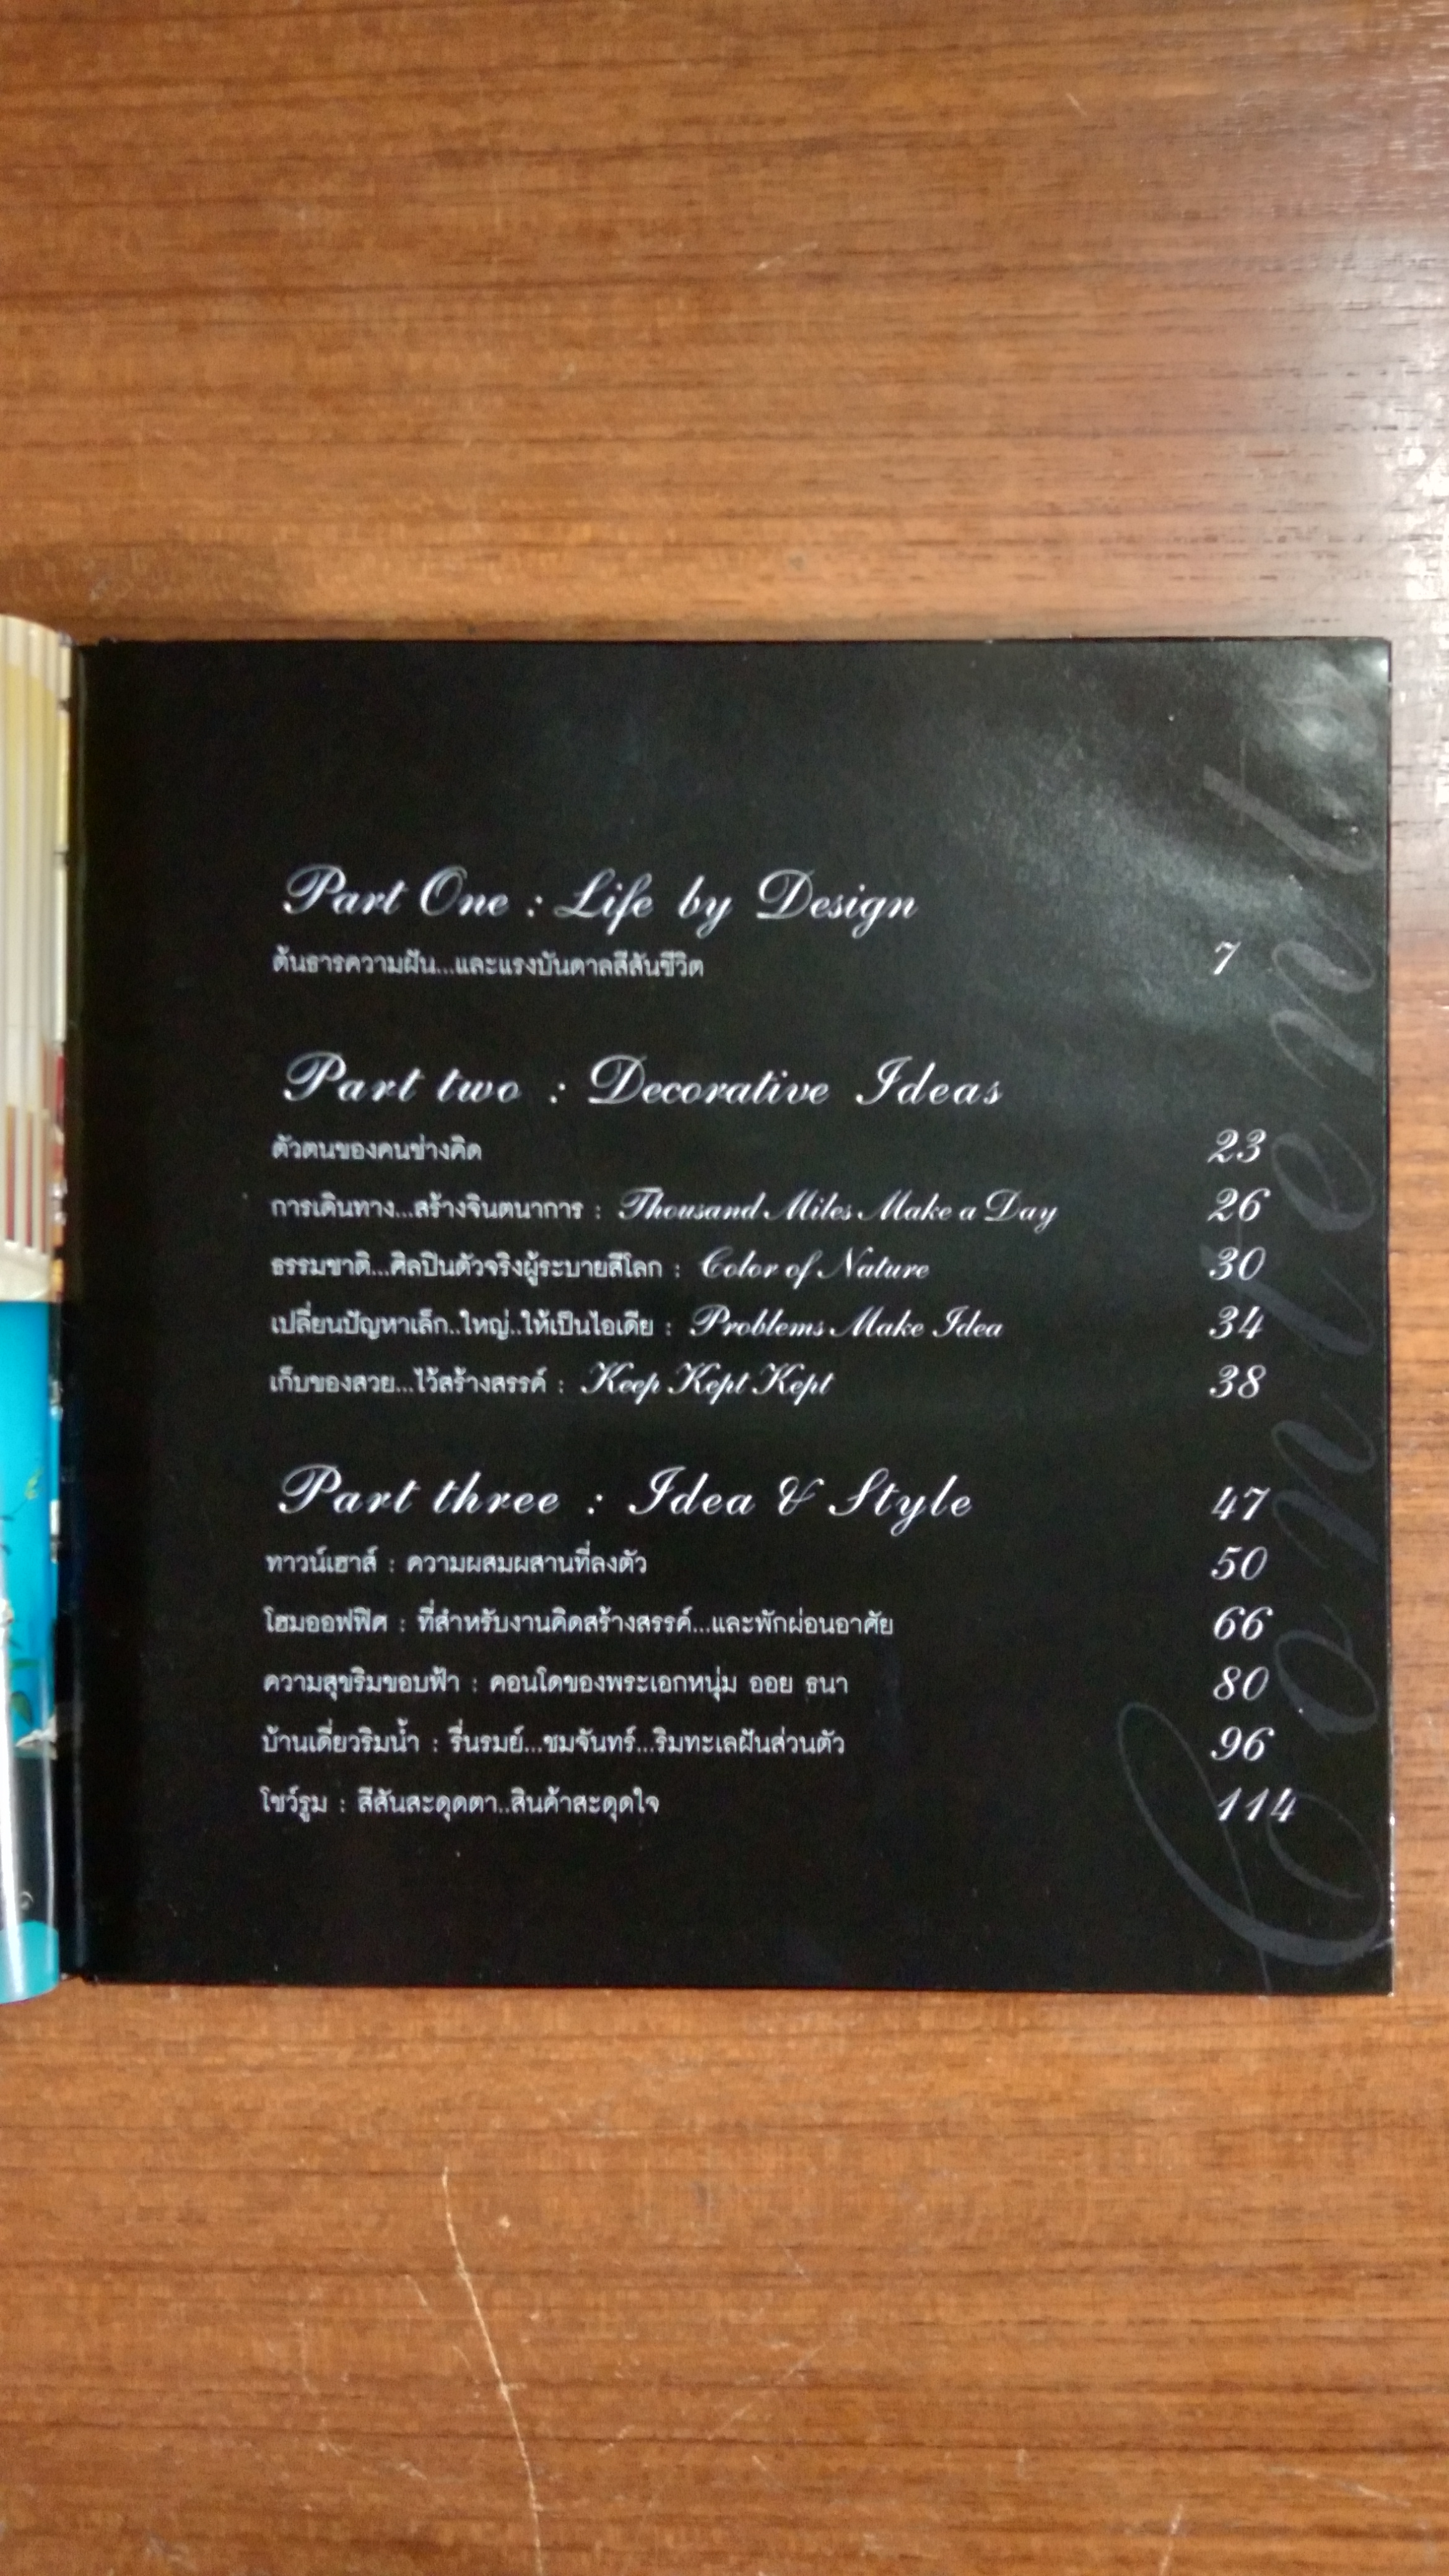 Part One : Life by Design
ต้นธารความฝัน...และแรงบันดาลสีสันชีวิต 7
Part two : Decorative Ideas
ตัวตนของคนช่างคิด 23
การเดินทาง...สร้างจินตนาการ : Thousand Miles Make a Day 26
ธรรมชาติ...ศิลปินตัวจริงผู้ระบายสีโลก : Color of Nature 30
เปลี่ยนปัญหาเล็ก..ใหญ่..ให้เป็นไอเดีย : Problems Make Idea 34
เก็บของสวย...ไว้สร้างสรรค์ : Keep Kept Kept 38
Part three : Idea & Style 47
ทาวน์เฮาส์ : ความผสมผสานที่ลงตัว 50
โฮมออฟฟิศ : ที่สำหรับงานคิดสร้างสรรค์...และพักผ่อนอาศัย 66
ความสุขริมขอบฟ้า : คอนโดของพระเอกหนุ่ม ออย ธนา 80
บ้านเดี่ยวริมน้ำ : รื่นรมย์...ชมจันทร์...ริมทะเลฝันส่วนตัว 96
โชว์รูม : สีสันสะดุดตา..สินค้าสะดุดใจ 114
Contents